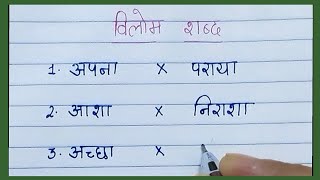 विलोम शब्द
1. अपना x पराया
2. आशा x निराशा
3. अच्छा x